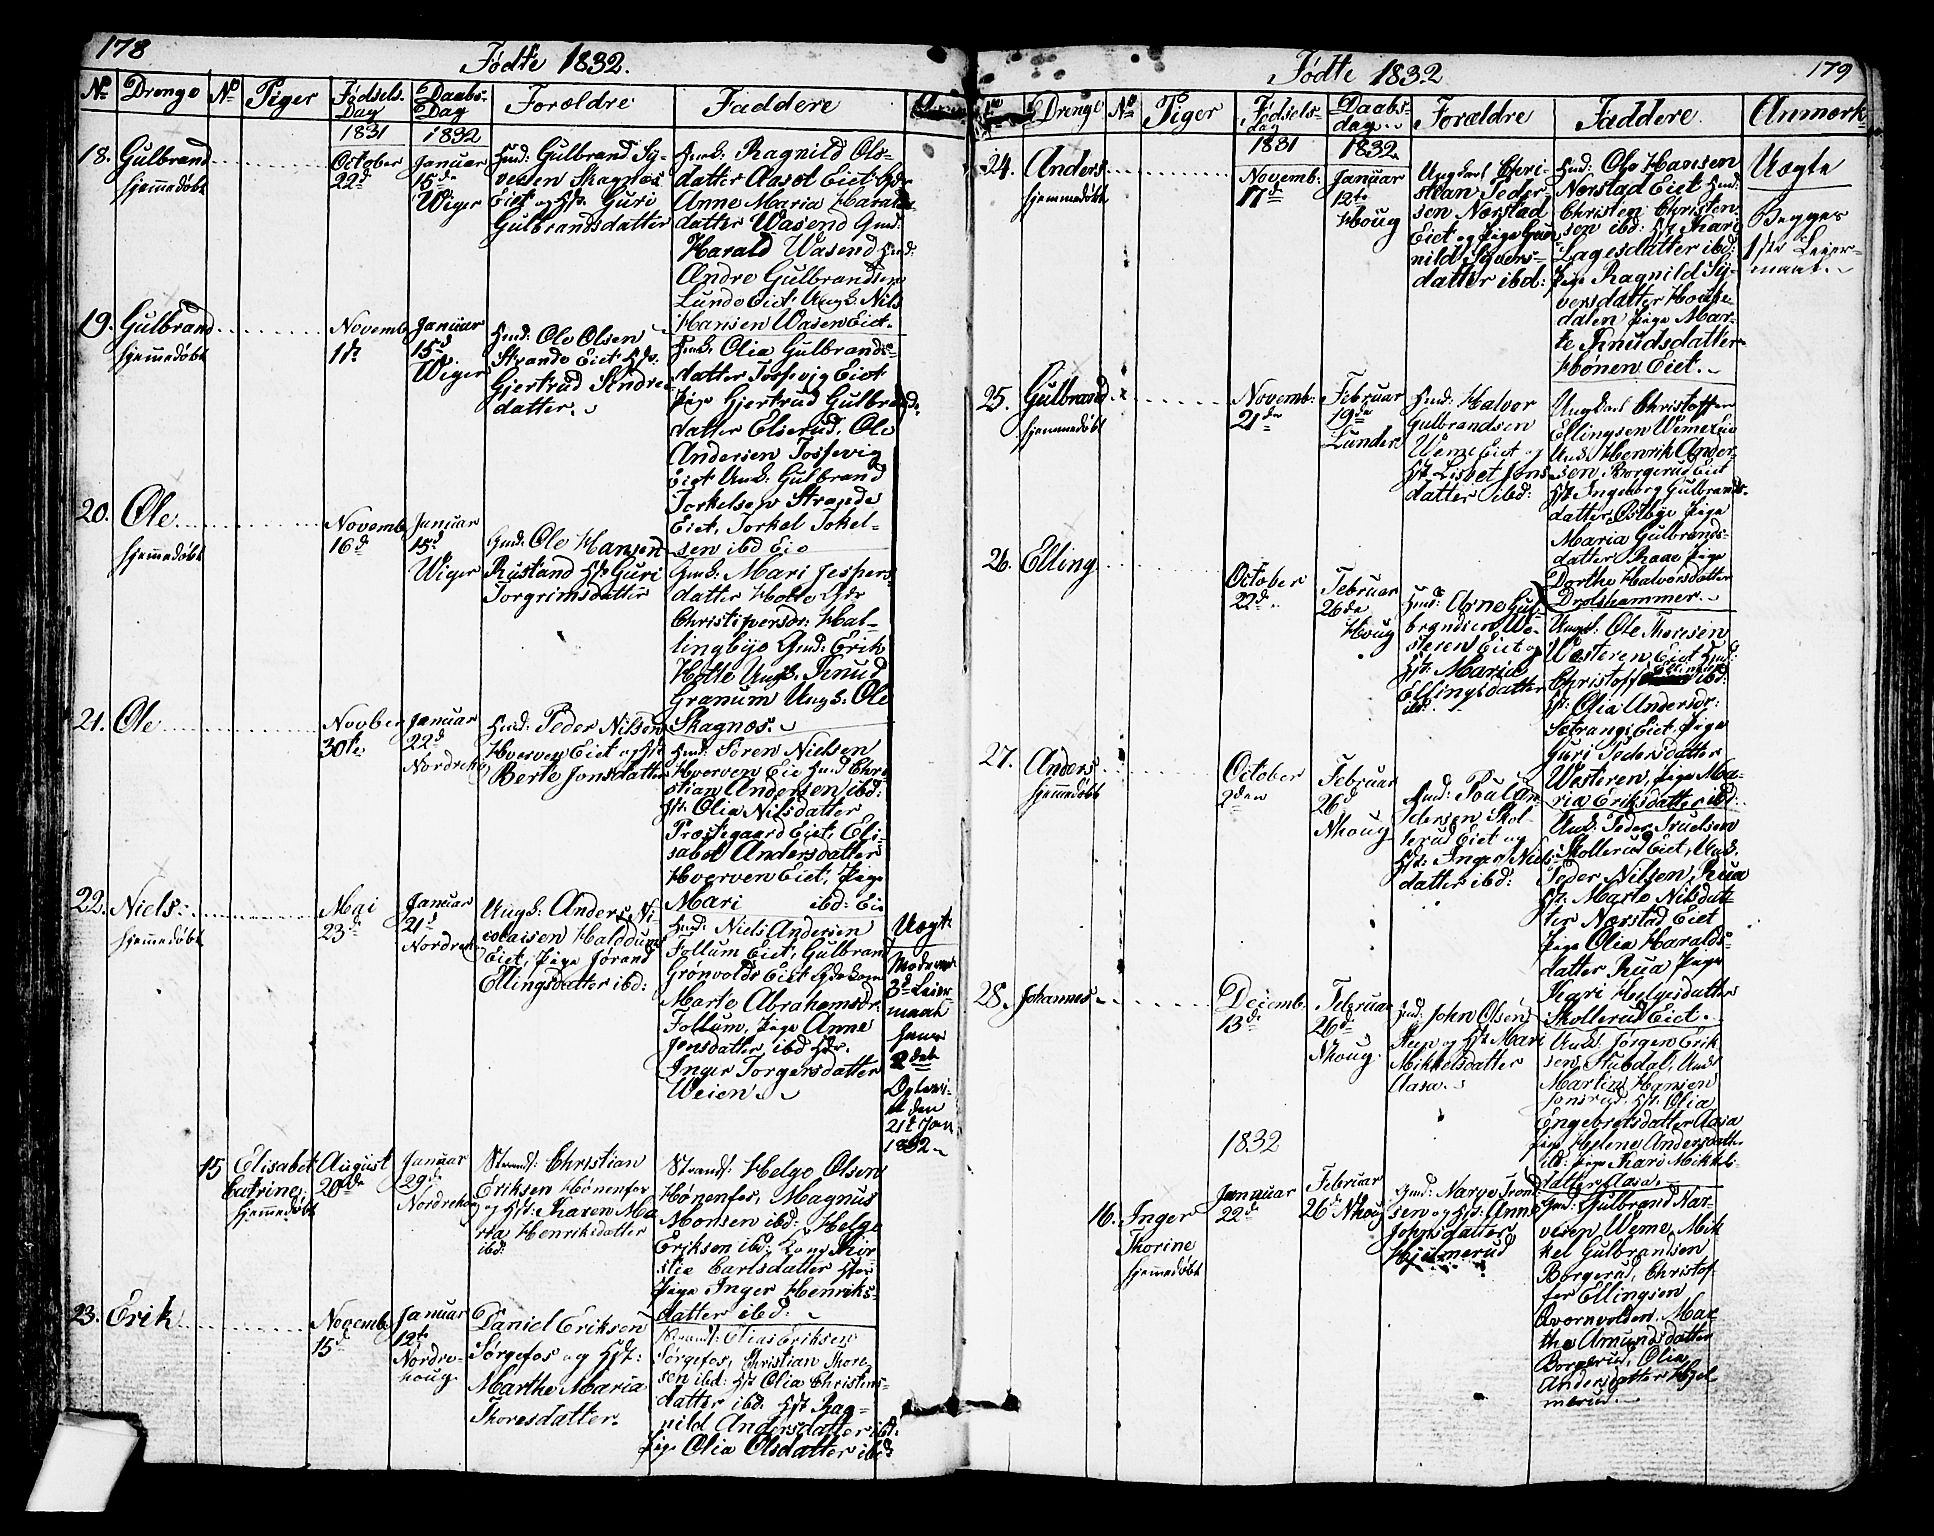 178
Fødte 1832.
No Drenge No Piger Fødsels-Dag Daabs-Dag Forældre Faddere
1831 1832
18. Gulbrand
hjemmedøbt
October
22d
Januar
15de
Wiger
Hmd: Gulbrand Sy-
versen Skagnæs
Eiet og Hst. Guri
Gulbrandsdatter
Ragnild Ols-
datter Aaset Eiet
Anne Maria Haralds
datter Wasend Gmd:
Harald Wasend Hmd:
Andre Gulbrandsen
Lunde Eiet Ungk. Nils
Hansen Wasen Eiet.
19. Gulbrand
hjemmedøbt
Novemb
1d.
Januar
15d
Wiger
Hmd: Ole Olsen
Strande Eiet
Gjertrud Sindre
datter.
Olia Gulbrands-
datter Tossevig Eiet
Pige Gjertrud Gulbrands
datter Elserud, Ole
Andersen Tossevig
Eiet Ungk: Gulbrand
Torkelsen Strande
Eiet, Torkel Tokel-
sen ibd Eie
20. Ole
hjemmedøbt
Novemb
16d
Januar
15d
Wiger
Gmd: Ole Hansen
Rustand Hst Guri
Torgrimsdatter
Mari Jespers-
datter Holte
Christipersdr. Hal-
lingbye Gmd: Erik
Holte Ungk. Knud
Granum Ungk: Ole
Skagnæs.
21. Ole
Novber
30te
Januar
22d
Nordreh
Hmd: Peder Nilsen
Hverven Eiet og Hst
Berte Jonsdatter
Hmd: Søren Nielsen
Hverven Eie Hmd Chri
stian Andersen ibd:
Hst: Olia Nilsdatter
Præstegaard Eiet, Eli-
sabet Andersdatter
Hverven Eiet, Pige
Mari ibd: Eie
22. Niels
hjemmedøbt
Mai
23d
Januar
21d
Nordreh
Ungk: Anders Ni-
colaisen Halddum
Eiet, Pige Jørand
Ellingsdatter ibd:
Hmd: Niels Andersen
Follum Eiet, Gulbran
Grønvolds Eiet
Marte Abrahamsdr.
Follum, Pige Anne
Jonsdatter ibd
Inger Torgersdatter
Weien.
Uægt:
3d Leier-
maal
2det
den
21t Jan
1832
15 Elisabet
Catrine
hjemmedøbt
August
20de
Januar
29d
Nordrehoug
Strands: Christian
Eriksen Hønenfos
og Hst: Karen Ma
ria Henriksdatter
ibd:
Strands: Helge Olsen
Hønenfos, Magnus
Monsen ibd: Helge
Eriksen ibd, Kir
stie Carlsdatter
Pige Inger Henriks-
datter ibd:
23. Erik
Novemb
15d
Januar
12t
Nordre-
houg
Daniel Eriksen
Sørgefos og Hst:
Marthe Maria
Thoresdatter.
Strands: Elias Eriksen
Sørgefos, Christian Thore
sen ibd: Hst Olia Christens-
datter ibd. Hst Rag-
nild Andersdatter ibd:
Pige Olia Olsdatter ibd
179
Fødte 1832
Drenge No Piger Fødsels-dag Daabs-dag Forældre Faddere Anmerk
1831 1832
24. Anders
hjemmedøbt
Novemb:
17de
Januar
12te
Houg
Ungkarl Chri-
stian Peder
sen Nærstad
Eiet og Pige Gun
nild Syvers-
datter ibd:
Hmd: Ole Hansen
Nærstad Eiet Hmd:
Christen Christen
sen ibd: Hst Kari
Lagesdatter ibd:
Pige Ragnild Sy-
versdatter
dalen Pige Mar-
te Knudsdatter
Hønen Eiet.
Uægte
Begges
1ste Leier-
maal.
25. Gulbrand
hjemmedøbt
Novemb:
21de
Februar
19de
Lunder
Hmd: Halvor
Gulbrandsen
Weme Eiet og
Hst Lisbet Jons
datter ibd:
Ungkarl Christoffer
Ellingsen
Henrik Ander-
sen, Borgerud Eiet
Hst Ingeborg Gulbrands-
datter, Østbye Pige
Maria Gulbrands-
datter Raae Pige
Dorthe Halvorsdatter
Drolshammer.
26. Elling
October
22d
Februar
26de
Houg
Hmd: Arne Gul-
brandsen We-
steren Eiet og
Hst: Maria
Ellingsdatter
ibd:
Ungk: Ole Thoresen
Wæsteren Eiet Hmd:
Christoff Ellingsen ibd:
Hst: Olia Andersdr:
Sætrang Eiet Pige
Guri Pedersdatter
Westeren, Pige Ma-
ria Eriksdatter ibd.
27. Anders
hjemmedøbt
October
2den
Februar
26d
Nhoug
Hmd: Poul An
dersen Skol
lerud Eiet og
Hst: Inger Niels
datter ibd:
Ungk: Peder Truelsen
Skollerud Eiet, Ungk.
Peder Nilsen, Rua
Hst: Marte Nilsdat-
ter Nærstad Eiet
Pige Olia Haralds-
datter Rua Pige
Kari Helgesdatter
Skollerud Eiet.
28. Johannes
Decemb.
13de
Februar
26d
Nhoug.
Hmd: John Olsen
og Hst Mari
Mikkelsdatter
Aasa.
Ungk Jørgen Erik
sen, Stubdal, Ungk
Martin Hansen
Jonsrud, Hst. Olia
Engebretsdatter Aasa
Pige Helene Andersdatt.
ibd: Pige Kari Mikkels-
datter Aasa.
1832
16. Inger
Thorine
hjemmedøbt
Januar
22d
Februar
26d Nhoug
Gmd: Narve Trond
sen og Hst: Anne
Johnsdatter
Hjelmerud
Gmd: Gulbrand Nar-
vesen Weme, Mik
kel Gulbrandsen
Borgerud, Christof
fer Ellingsen
Averøvolden, Mar-
the Amundsdatter
Borgerud, Olia
Andersdatter Hjel
merud.